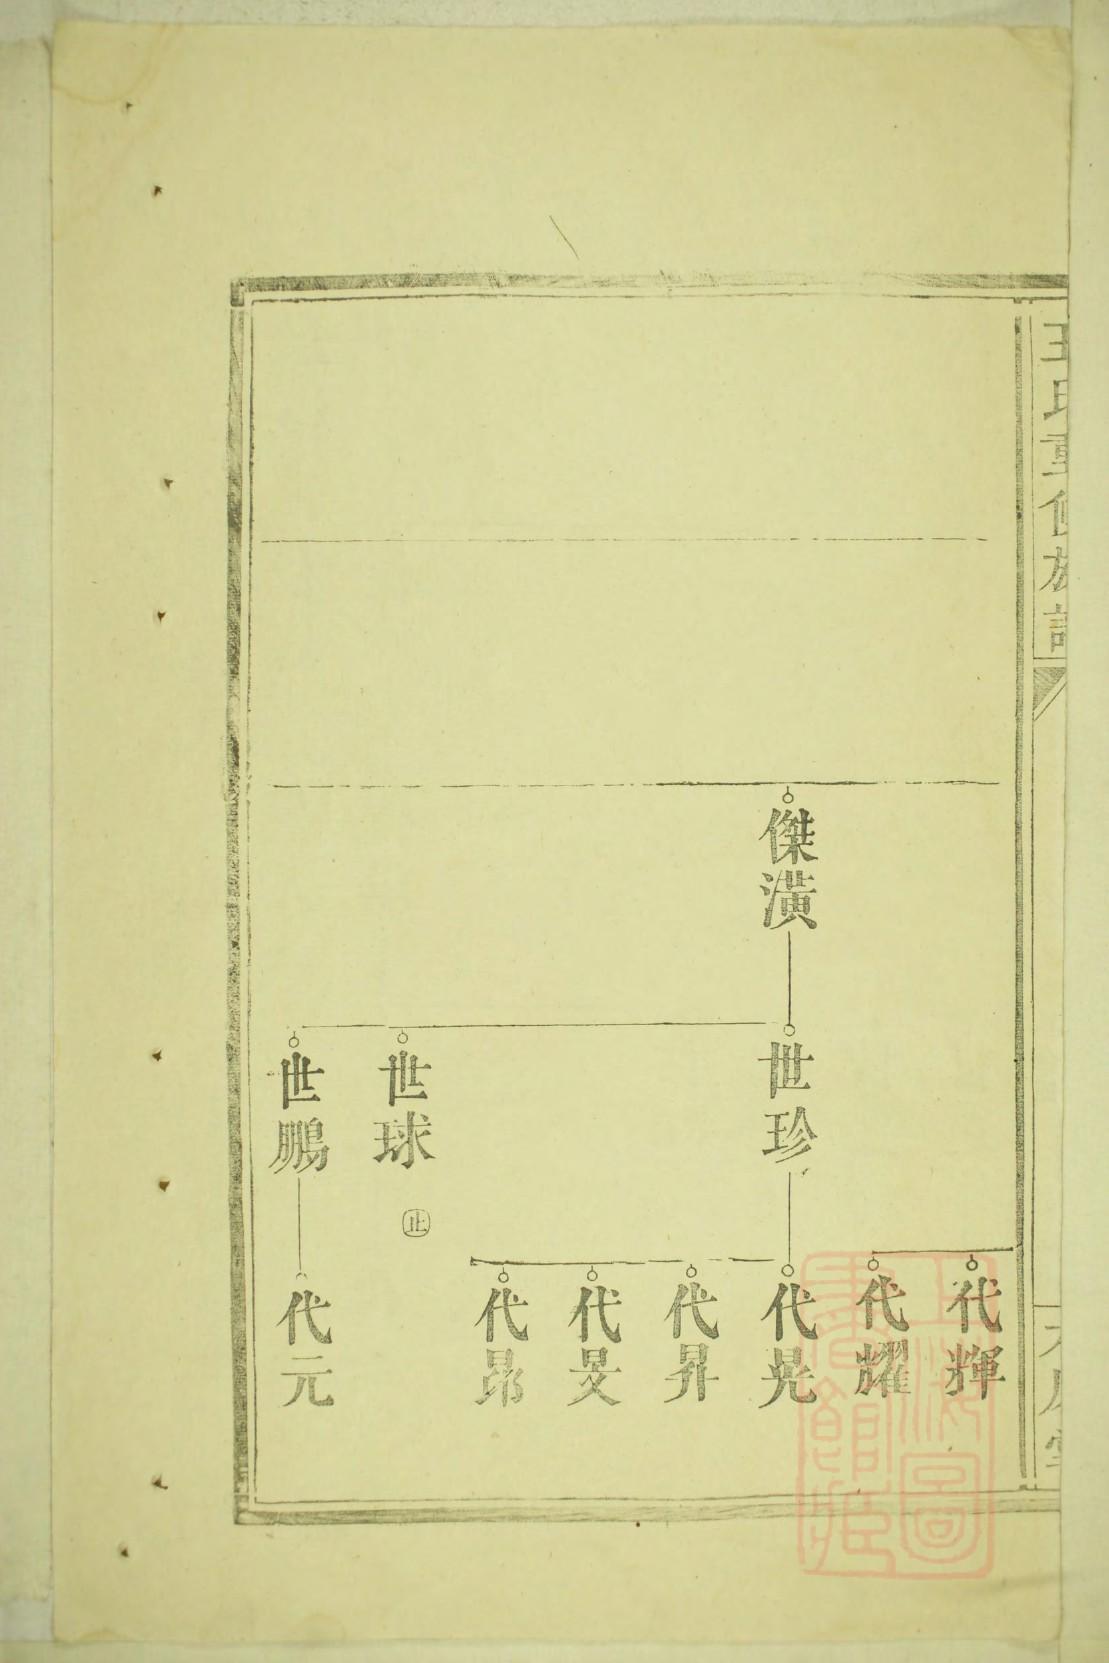 王氏重修族譜
代輝
代耀
傑潢
世珍
代晃
代昇
代旻
代昂
世球
止
世鵬
代元
上海圖書館藏